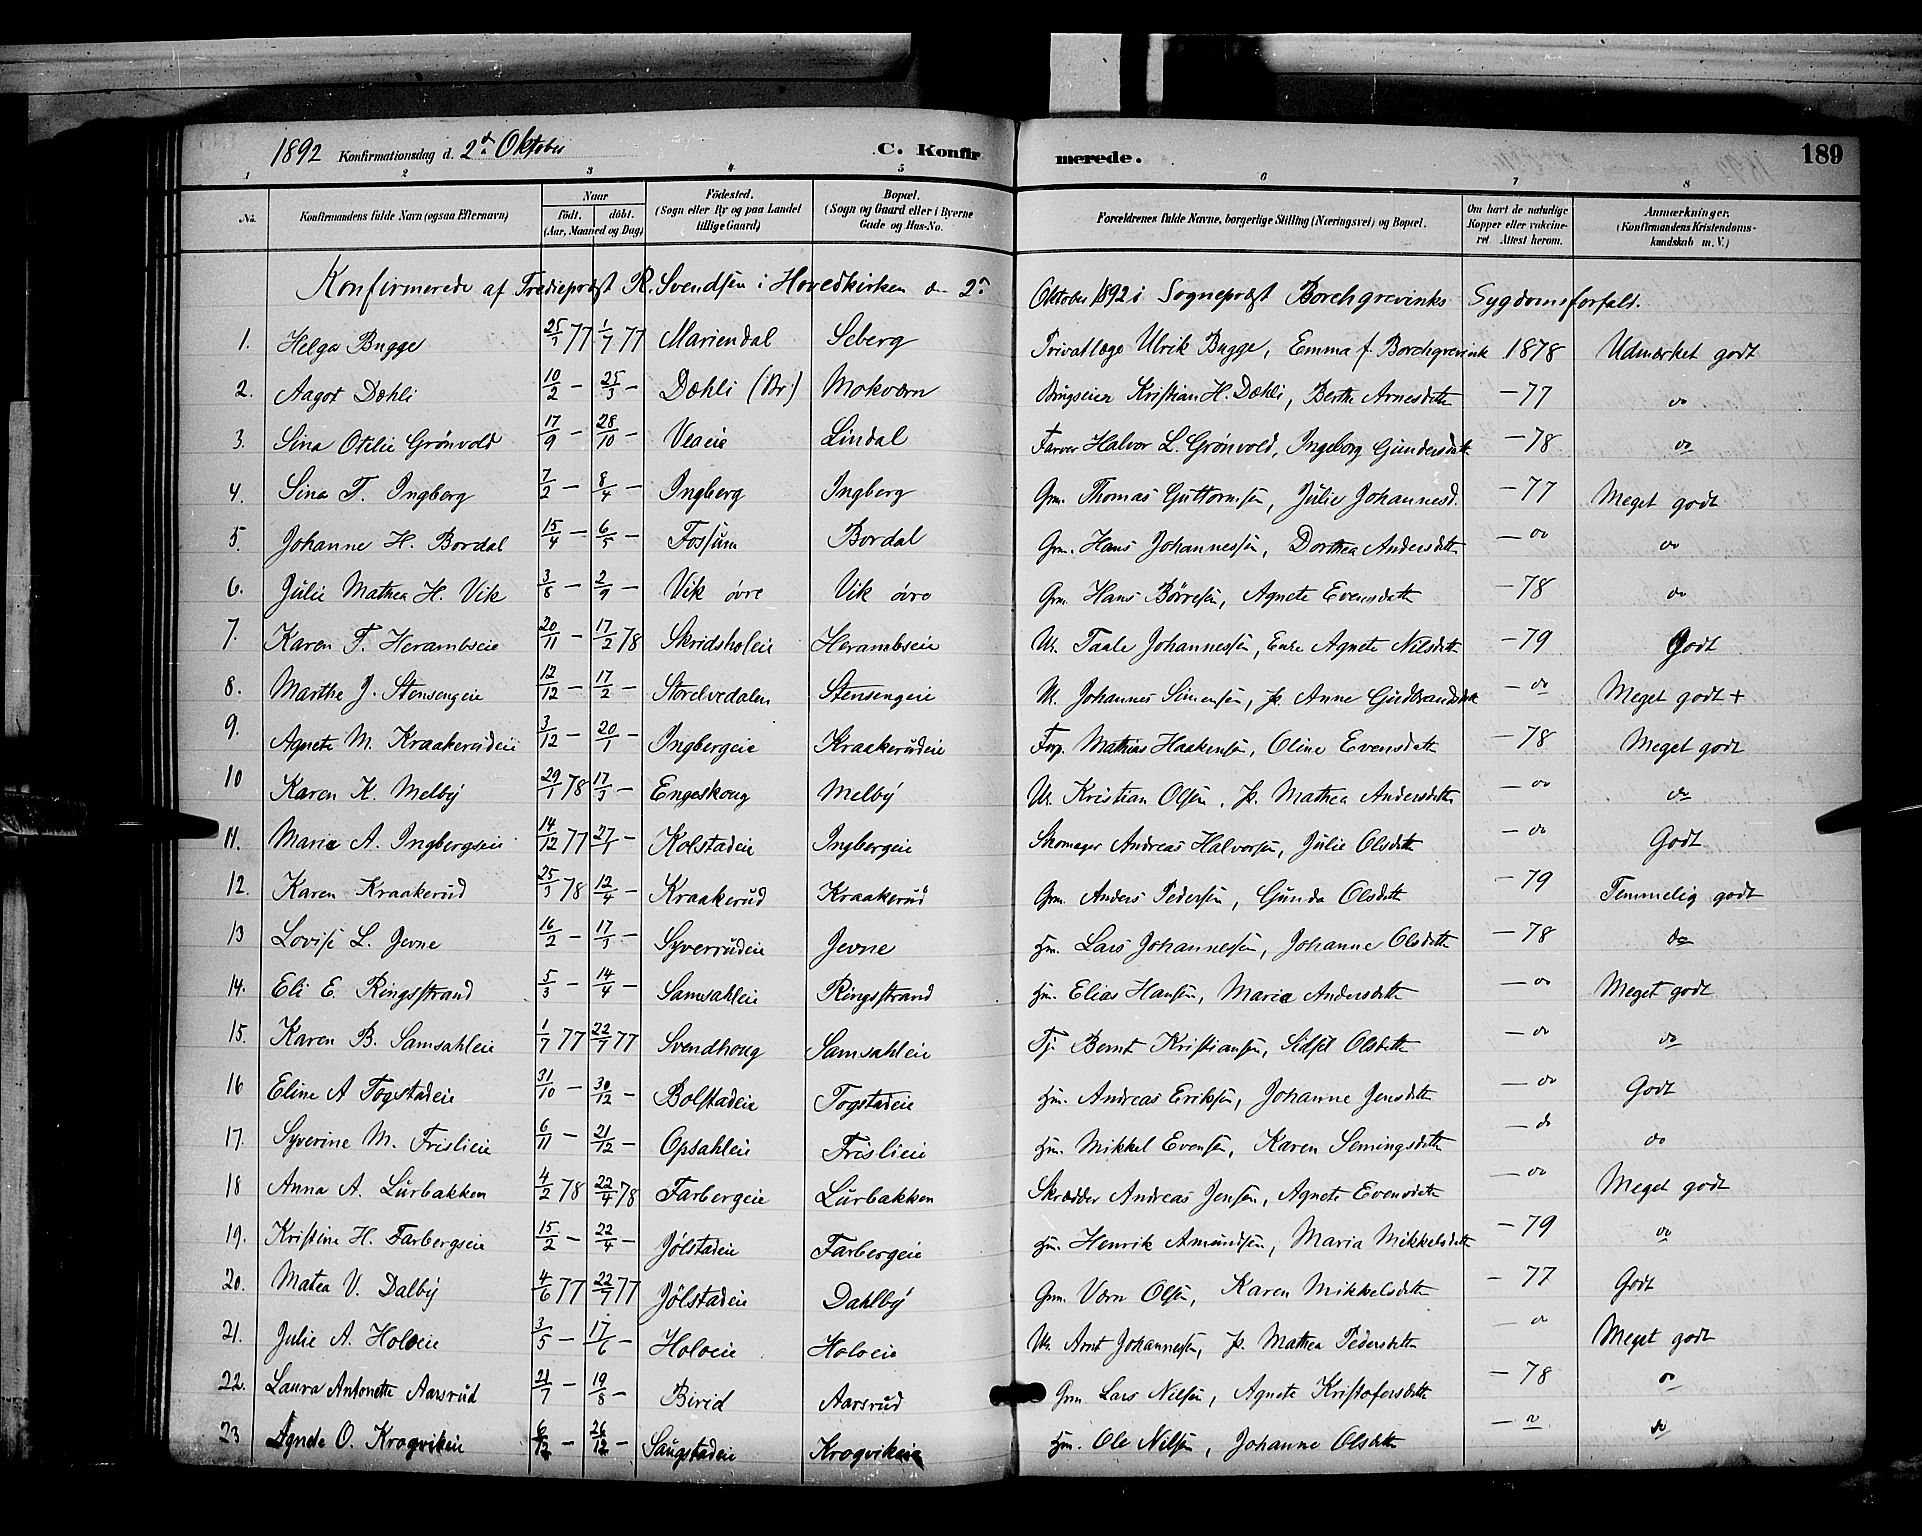 1892 Konfirmationsdag d. 2den Oktober C. Konfirmerede. 189
1 2 3 4 5 6 7 8
No. Konfirmandens fulde Navn (ogsaa Efternavn) Naar født. døbt. (Aar, Maaned og Dag) Fødested. (Sogn eller By og paa Landet tillige Gaard) Bopæl. (Sogn og Gaard eller i Byerne Gade og Hus-No. Forældrenes fulde Navne, borgerlige Stilling (Næringsvei) og Bopæl. Om havt de naturlige Kopper eller vakcineret. Attest herom. Anmærkninger. (Konfirmandens Kristendomskundskab m. V.)
Konfirmerede af Trediepræst R. Svendsen i Hovedkirken den 2den Oktober 1892 i Sognepræst Borchgrevinks Sygdomsforfald.
1. Helga Bugge 25/1 77 1/7 77 Mariendal Seberg Privatlæge Ulrik Bugge, Emma f. Borchgrevink 1878 Udmærket godt
2. Aagot Dæhli 10/2 — 25/3 — Dæhli (Br.) Mokværn Brugseier Kristian H. Dæhli, Berthe Arnesdatter — 77 do
3. Sina Otilie Grønvold 17/9 — 28/10 — Veaeie Lindal Farver Halvor L. Grønvold, Ingeborg Gundersdatt. — 78 do
4. Sina T. Ingberg 7/2 — 8/4 — Ingberg Ingberg Grm. Thomas Guttormsen, Julie Johannesd. — 77 Meget godt
5. Johanne H. Bordal 15/4 — 6/5 — Fossum Bordal Grm. Hans Johannessen, Dorthea Andersdatter — do do
6. Julie Mathea H. Vik 3/8 — 2/9 — Vik øvre Vik øvre Grm. Hans Børresen, Agnete Evensdatter — 78 do
7. Karen T. Herambseie 20/11 — 17/2 78 Skridsholeie Herambseie Um. Taale Johannessen, Enke Agnete Nilsdatter — 79 Godt
8. Marthe J. Stensengeie 12/12 — 17/2 — Storelvedalen Stensengeie U. Johannes Simensen, p. Anne Gudbrandsdatter — do Meget godt +
9. Agnete M. Kraakerudeie 3/12 — 20/1 — Ingbergeie Kraakerudeie Forp. Mathias Haakensen, Oline Evensdatter — 78 Meget godt
10 Karen K. Melby 29/1 78 17/3 — Engeskoug Melby Um. Kristian Olsen, p. Mathea Andersdatter — do do
11. Maria A. Ingbergseie 14/12 77 27/1 — Kolstadeie Ingbergeie Skomager Andreas Halvorsen, Julie Olsdatter — do Godt
12. Karen Kraakerud 25/3 78 12/4 — Kraakerud Kraakerud Grm. Anders Pedersen, Gunda Olsdatter — 79 Temmelig godt
13 Lovise L. Jevne 16/2 — 17/3 — Syverrudeie Jevne Hm. Lars Johannessen, Johanne Olsdatter — 78 do
14. Eli E. Ringsstrand 5/3 — 14/4 — Samsahleie Ringsstrand Hm. Elias Hansen, Maria Andersdatter — do Meget godt
15. Karen B. Samsahleie 1/7 77 22/7 77 Svendhoug Samsahleie Tj. Bernt Kristiansen, Sidsel Olsdatter — do do
16 Eline A Togstadeie 31/10 — 30/12 — Bolstadeie Togstadeie Hm. Andreas Eriksen, Johanne Jensdatter — do Godt
17. Syverine M. Frislieie 6/11 — 21/12 — Opsahleie Frislieie Hm. Mikkel Evensen, Karen Semingsdatter — do do
18 Anna A. Lurbakken 4/2 78 22/4 78 Farbergeie Lurbakken Skrædder Andreas Jensen, Agnete Evensdatter — do Meget godt
19. Kristine H. Farbergseie 15/2 — 22/4 — Jølstadeie Farbergeie Hm. Henrik Amundsen, Maria Mikkelsdatter — 79 do
20. Matea V. Dalby 4/6 77 22/7 77 Jølstadeie Dahlby Grm. Værn Olsen, Karen Mikkelsdatter — 77 Godt
21. Julie A. Holoeie 3/5 — 17/6 — Holoeie Holoeie Um. Arnt Johannessen, p. Mathea Pedersdatter — do Meget godt
22. Laura Antonette Aarsrud 21/7 — 19/8 — Birid Aarsrud Grm Lars Nilsen, Agnete Kristofersdatter — 78 do
23 Agnete O. Krogvikeie 6/12 — 26/12 — Saugstadeie Krogvikeie Hm. Ole Nilsen, Johanne Olsdatter — do do